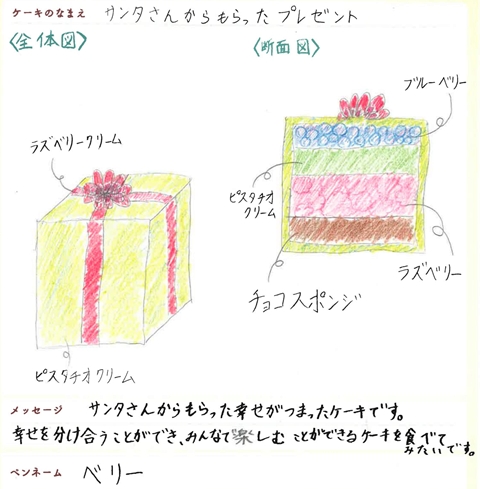 ケーキのなまえ サンタさんからもらったプレゼント
〈全体図〉
〈断面図〉
ブルーベリー
ラズベリークリーム
ピスタチオ
クリーム
ラズベリー
チョコスポンジ
ピスタチオクリーム
メッセージ サンタさんからもらった幸せがつまったケーキです。
幸せを分け合うことができ、みんなで楽しむことができるケーキを食べて
みたいです。
ペンネーム ベリー